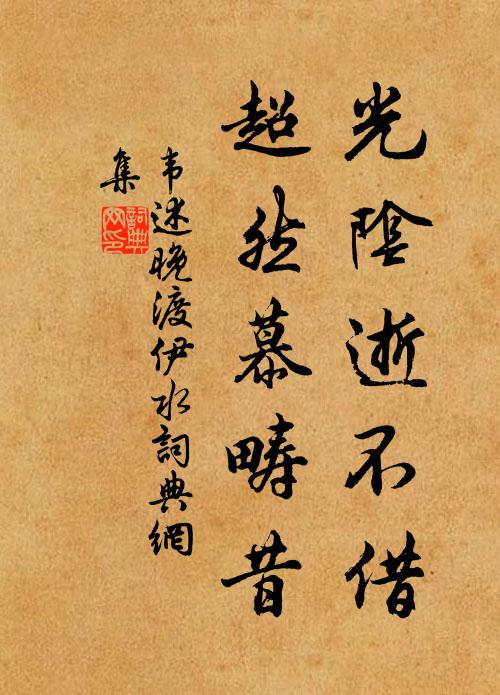 光陰逝不借
超然慕疇昔
韦述晚渡伊水詞典網
集
詞典
网印